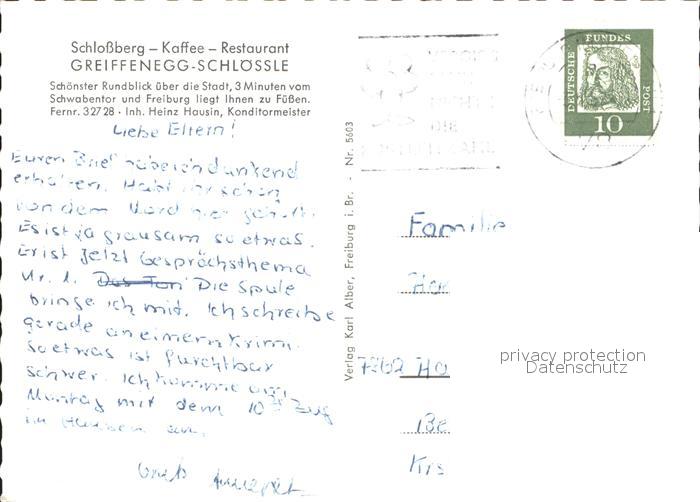 Schloßberg – Kaffee – Restaurant
GREIFFENEGG-SCHLÖSSLE
Schönster Rundblick über die Stadt, 3 Minuten vom
Schwabentor und Freiburg liegt Ihnen zu Füßen.
Fernr. 32728 · Inh. Heinz Hausin, Konditormeister
Liebe Eltern!
Euren Brief habe ich dankend
erhalten. Habt ihr schon
von dem Mord hier gehört.
Es ist ja grausam so etwas.
Er ist jetzt Gesprächsthema
Nr. 1. Die Spule
bringe ich mit. Ich schreibe
gerade an einem Krimi.
so etwas ist furchtbar
schwer. Ich komme am
Montag mit dem 10 Zug
in Hausen an.
Verlag Karl Alber, Freiburg i. Br. - Nr. 5603
DEUTSCHE BUNDESPOST
10
Familie
privacy protection
Datenschutz